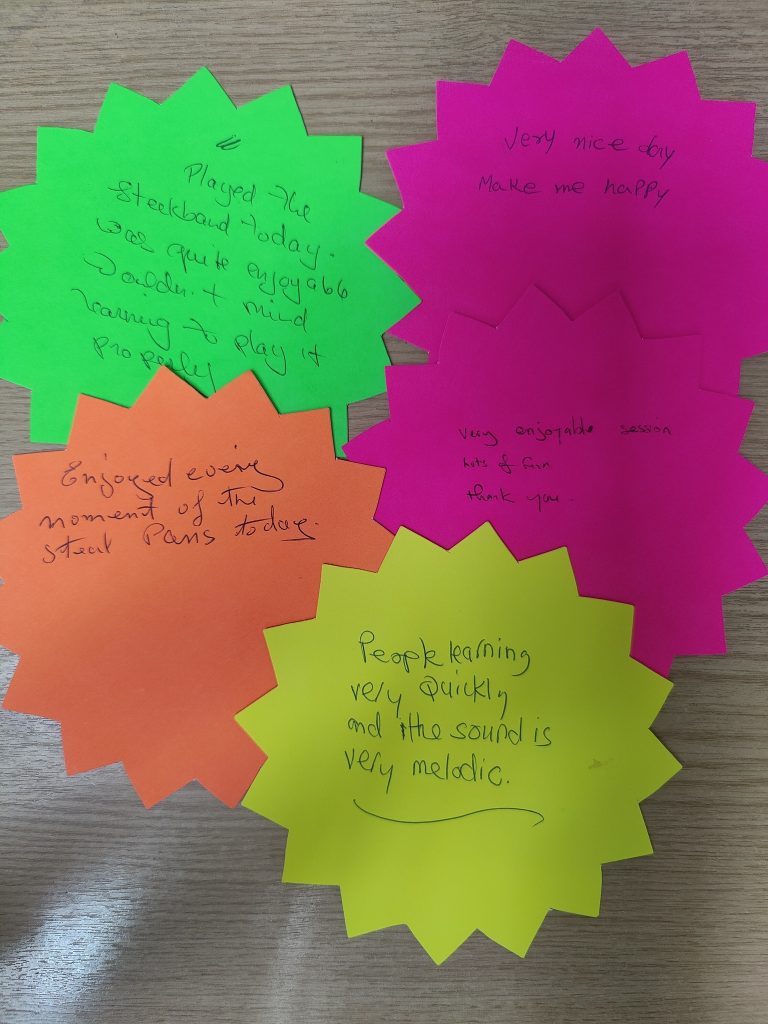 Played the
Steelband today.
was quite enjoyable
Wouldn't mind
learning to play it
properly
Very nice day
Make me happy
Enjoyed every
moment of the
steal Pans today.
very enjoyable session
Lots of fun
thank you.
People learning
very Quickly
and the sound is
very melodic.